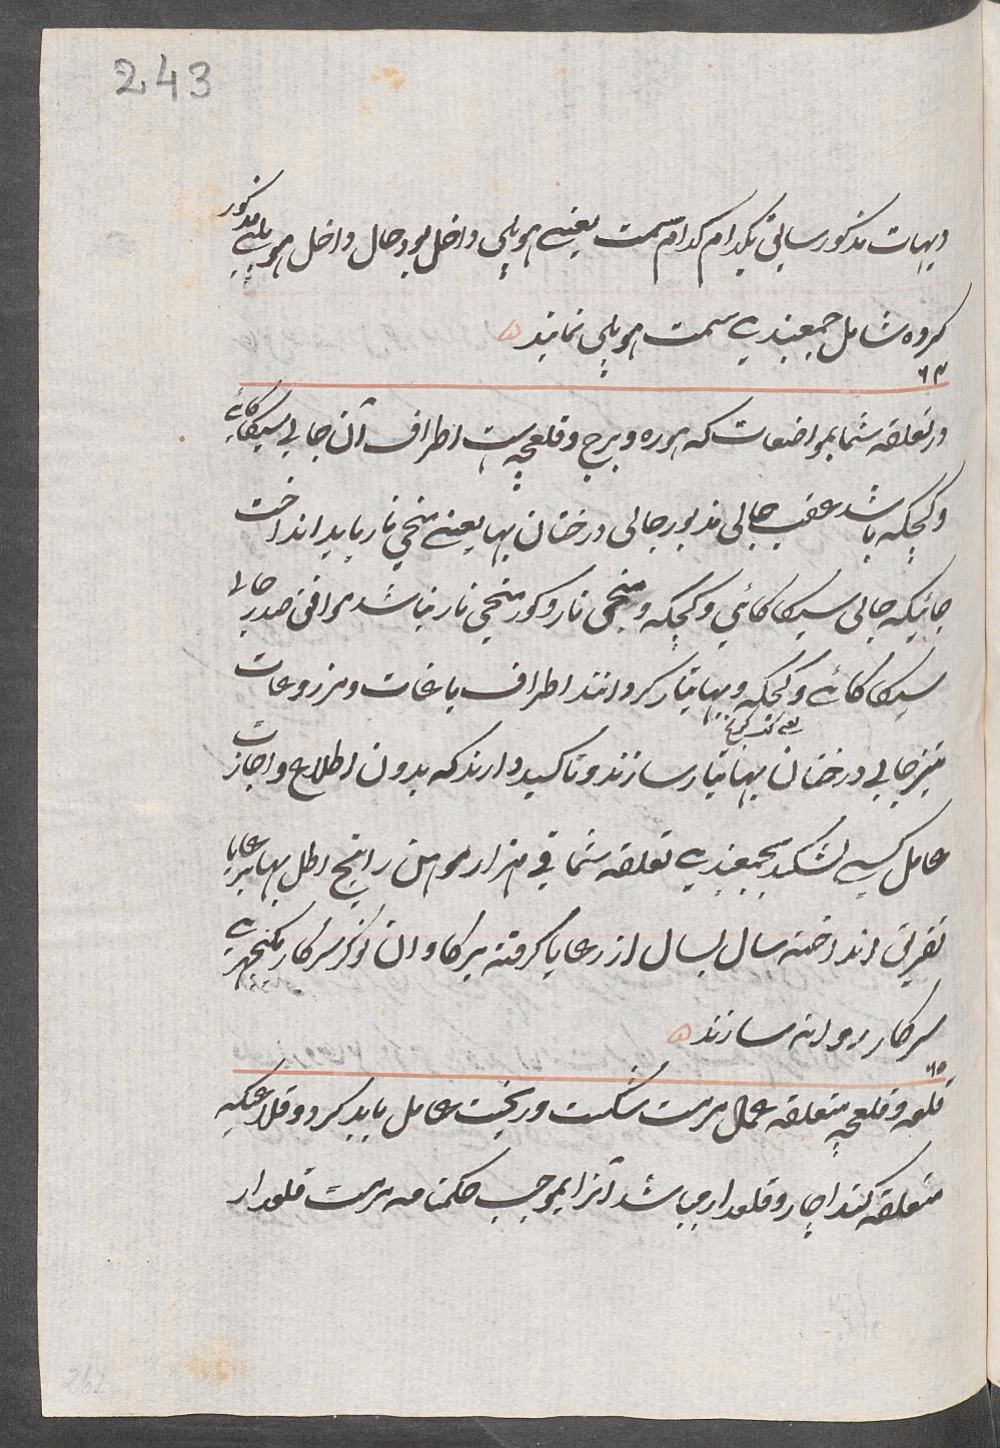 243
دیهات مذکور سابق بکدام کدام سمت یعنے هوبلی داخل بود حال داخل هوبلے مذکور
کروه شامل جمعبندی سمت هوبلی نمایند
۶۴
در تعلقه شما بمواضعات که هوره و برج و قلعچه است اطراف آن جالی سیکاکائے
و کجکه باشد عقب جالی مذبور جالی درختان بها یعنے منجی نار باید انداخت
جائیکه جالی سیکاکائی و کجکه و منجی نار و کور منجی نار نباشد موافق صدر جالی
سیکاکائے و کجکه و بها تیار کردانند اطراف باغات و مزروعات
نیز جالی درختان بها تیار سازند و تاکید دارند که بدون اطلاع و اجازت
عامل کسے نشکند بجمعبندی تعلقه شما فی هزار هون رایج رطل بها بر رعایا
تفریق انداخته سال بسال از رعایا کرفته برکاوان نوکر سرکار بکنجهری
سرکار روانه سازند
۶۵
قلعه و قلعچه متعلقه عمال مرمت شکست و ریخت عامل باید کرد و قلاعیکه
متعلقه کنداچار و قلعدار میباشد آنرا بموجب حکمنامه مرمت قلعدار